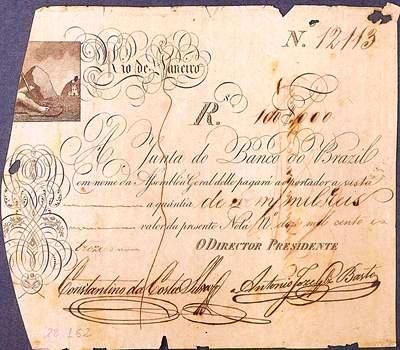 N. 12113
Rio de Janeiro
R.s 100$000
A Junta do Banco do Brazil
em nome da Assemblea Geral delle pagará ao portador á vista
a quantia de cem mil reis
valor da presente Nota N. doze mil cento e
treze
O DIRECTOR PRESIDENTE
Constantino da Costa
Antonio José Basto
28.162